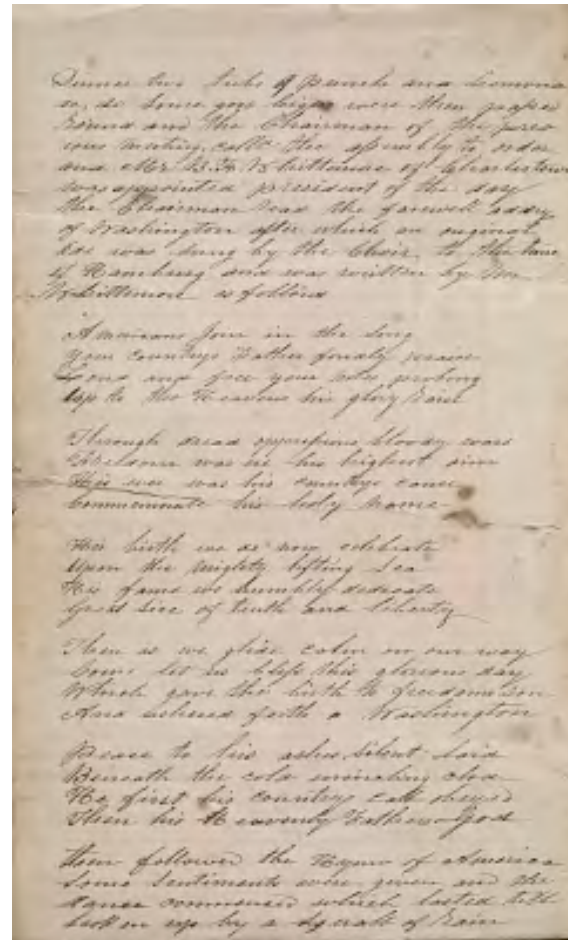 Dinner two tubs of punch and Lemona
de, do some good cigars were then passed
round and the Chairman of the prev
ious meeting calld the assembly to order
and Mr B. F. Whittemore of Charlestown
was appointed president of the day
the Chairman read the farewell
of Washington after which an original
was sung by the Choir, to the tune
of Hamburg and was written by Mr
Whittemore as follows
Americans join in the song
your Countrys Father fondly
and free your notes prolong
Up to the Heavens his glory
Through dread oppressions bloody wars
Freedom was his highest aim
His was his countrys cause
Commemorate his holy name
His birth we do now celebrate
Upon the mighty lifting Sea
His fame we humbly dedicate
Great sire of truth and liberty
Then as we glide calm on our way
Come let us bless this glorious day
Which gave the birth to freedoms son
And ushered forth a Washington
Peace to his ashes silent laid
Beneath the cold clod
He first his Country's call obeyed
Then his Heavenly Father God
then followed the Hymn of America
Some sentiments were given and the
dance commenced which lasted till
broken up by a squall of rain